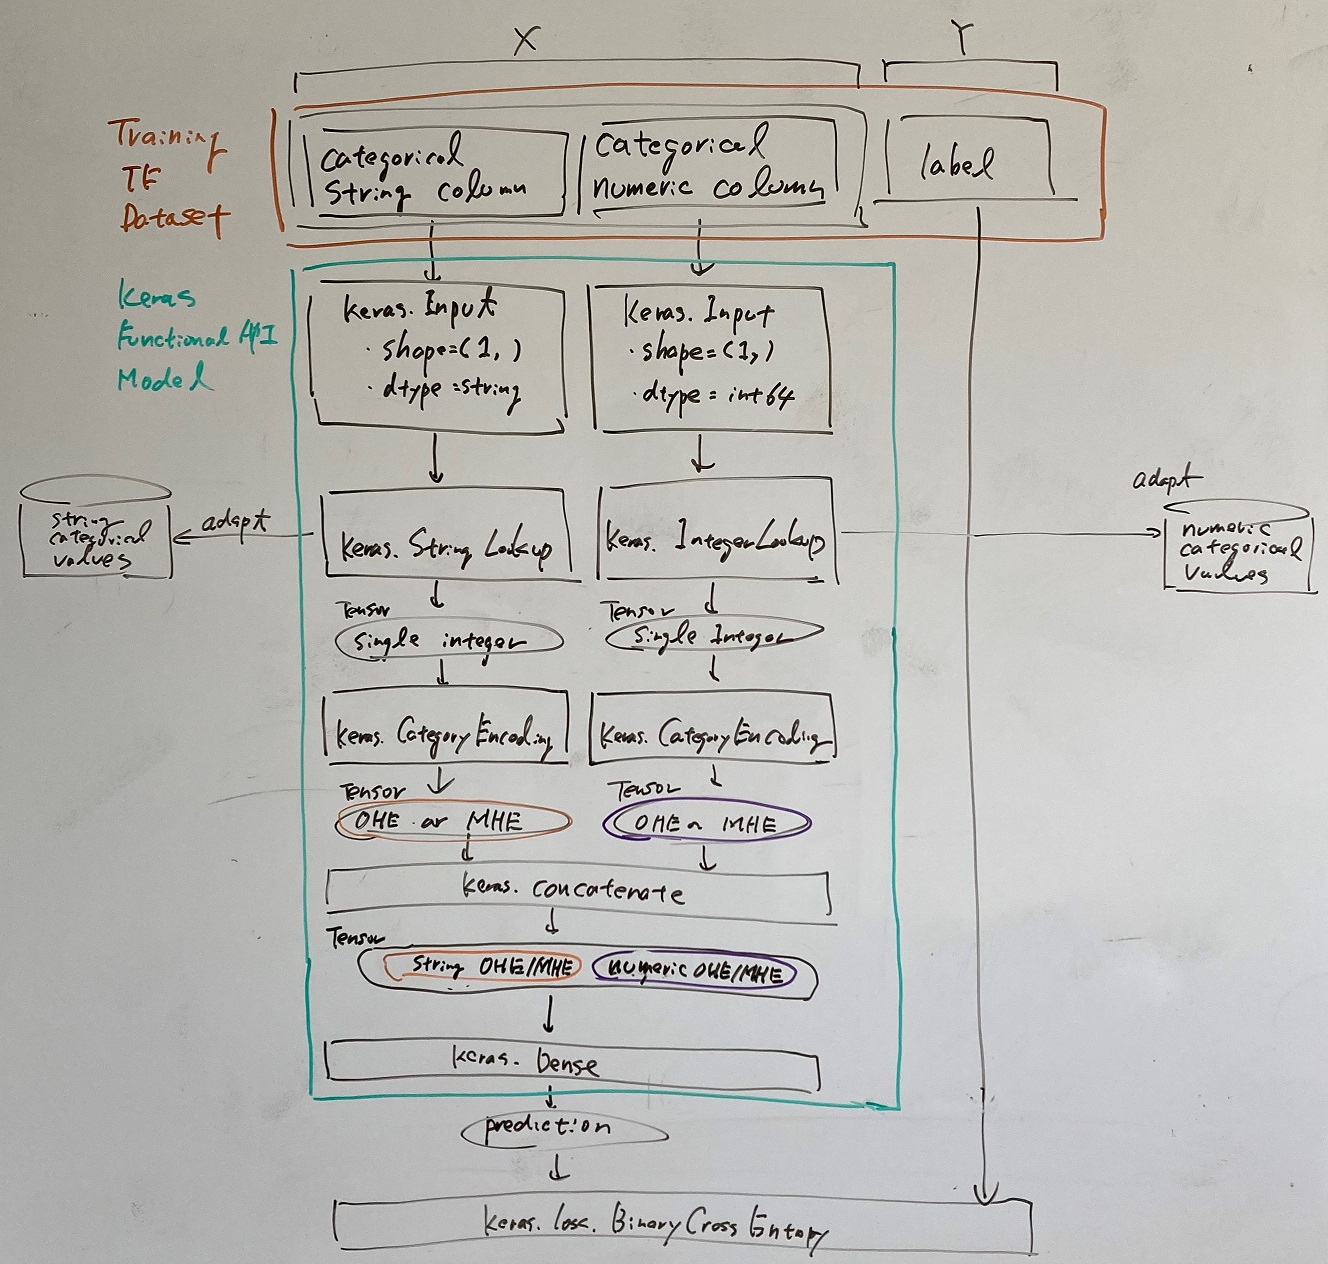 X
Y
Training
TF
Dataset
categorical
string column
categorical
numeric column
label
Keras
Functional API
Model
keras. Input
· shape=(1, )
· dtype =string
keras. Input
· shape=(1,)
· dtype = int64
string
categorical
values
adapt
keras. String Lookup
keras. IntegerLookup
adapt
numeric
categorical
values
Tensor
single integer
Tensor
Single Integer
keras. CategoryEncoding
keras. CategoryEncoding
Tensor
OHE or MHE
Tensor
OHE or MHE
keras. concatenate
Tensor
String OHE/MHE
numeric OHE/MHE
keras. Dense
prediction
keras. loss. BinaryCross Entropy